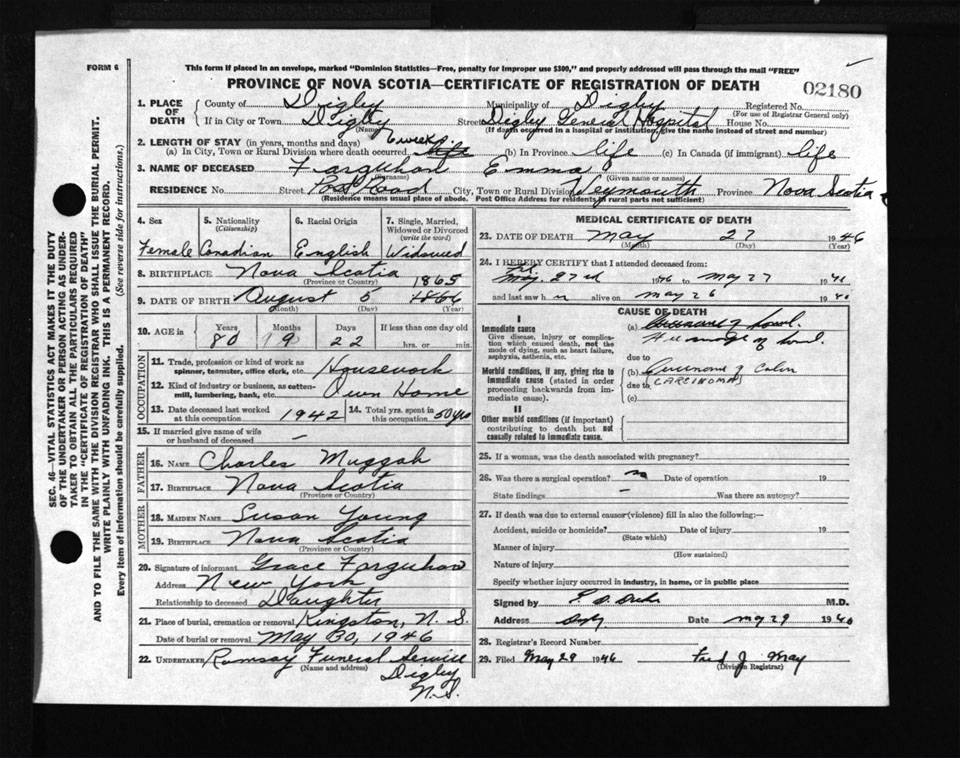 FORM 6
This form if placed in an envelope, marked "Dominion Statistics—Free, penalty for improper use $300," and properly addressed will pass through the mail "FREE"
PROVINCE OF NOVA SCOTIA—CERTIFICATE OF REGISTRATION OF DEATH
02180
1. PLACE OF DEATH
County of Digby Municipality of Digby Registered No.
(For use of Registrar General only)
If in City or Town Digby Street Digby General Hospital House No.
(Name) (If death occurred in a hospital or institution, give the name instead of street and number)
2. LENGTH OF STAY (in years, months and days)
(a) In City, Town or Rural Division where death occurred 6 weeks life (b) In Province life (c) In Canada (if immigrant) life
3. NAME OF DECEASED Farquhar Emma
(Surname) (Given name or names)
RESIDENCE No. Street Post Road City, Town or Rural Division Weymouth Province Nova Scotia
(Residence means usual place of abode. Post Office Address for residents in rural parts not sufficient)
4. Sex
Female
5. Nationality
(Citizenship)
Canadian
6. Racial Origin
English
7. Single, Married, Widowed or Divorced
(write the word)
Widowed
8. BIRTHPLACE Nova Scotia
(Province or Country)
1865
9. DATE OF BIRTH August 5 1866
(Month) (Day) (Year)
10. AGE in
Years Months Days If less than one day old
80 9 22 hrs. or min.
OCCUPATION
11. Trade, profession or kind of work as spinner, teamster, office clerk, etc. Housework
12. Kind of industry or business, as cotten-mill, lumbering, bank, etc. Own Home
13. Date deceased last worked at this occupation 1942
14. Total yrs. spent in this occupation 50 yrs
15. If married give name of wife or husband of deceased —
FATHER
16. NAME Charles Muggah
17. BIRTHPLACE Nova Scotia
(Province or Country)
MOTHER
18. MAIDEN NAME Susan Young
19. BIRTHPLACE Nova Scotia
(Province or Country)
20. Signature of informant Grace Farquhar
Address New York
Relationship to deceased Daughter
21. Place of burial, cremation or removal Kingston, N. S.
Date of burial or removal May 30, 1946
22. UNDERTAKER Ramsay Funeral Service
(Name and address)
Digby
N.S.
MEDICAL CERTIFICATE OF DEATH
23. DATE OF DEATH May 27 1946
(Month) (Day) (Year)
24. I HEREBY CERTIFY that I attended deceased from:
27 19 to May 27 19
and last saw h alive on May 26 19
CAUSE OF DEATH
I
Immediate cause
Give disease, injury or complication which caused death, not the mode of dying, such as heart failure, asphyxia, asthenia, etc.
(a)
due to
Morbid conditions, if any, giving rise to immediate cause (stated in order proceeding backwards from immediate cause).
(b) of Colon
due to (CARCINOMA)
(c)
II
Other morbid conditions (if important) contributing to death but not causally related to immediate cause.
25. If a woman, was the death associated with pregnancy?
26. Was there a surgical operation? no Date of operation 19
State findings — Was there an autopsy?
27. If death was due to external causes (violence) fill in also the following:—
Accident, suicide or homicide? Date of injury 19
(State which)
Manner of injury
(How sustained)
Nature of injury
Specify whether injury occurred in industry, in home, or in public place
Signed by M.D.
Address Date May 29 19
28. Registrar's Record Number
29. Filed May 29 1946 Fred J. May
(Division Registrar)
SEC. 46—VITAL STATISTICS ACT MAKES IT THE DUTY
OF THE UNDERTAKER OR PERSON ACTING AS UNDER-
TAKER TO OBTAIN ALL THE PARTICULARS REQUIRED
IN THE "CERTIFICATE OF REGISTRATION OF DEATH"
AND TO FILE THE SAME WITH THE DIVISION REGISTRAR WHO SHALL ISSUE THE BURIAL PERMIT.
WRITE PLAINLY WITH UNFADING INK. THIS IS A PERMANENT RECORD.
Every item of information should be carefully supplied. (See reverse side for instructions.)